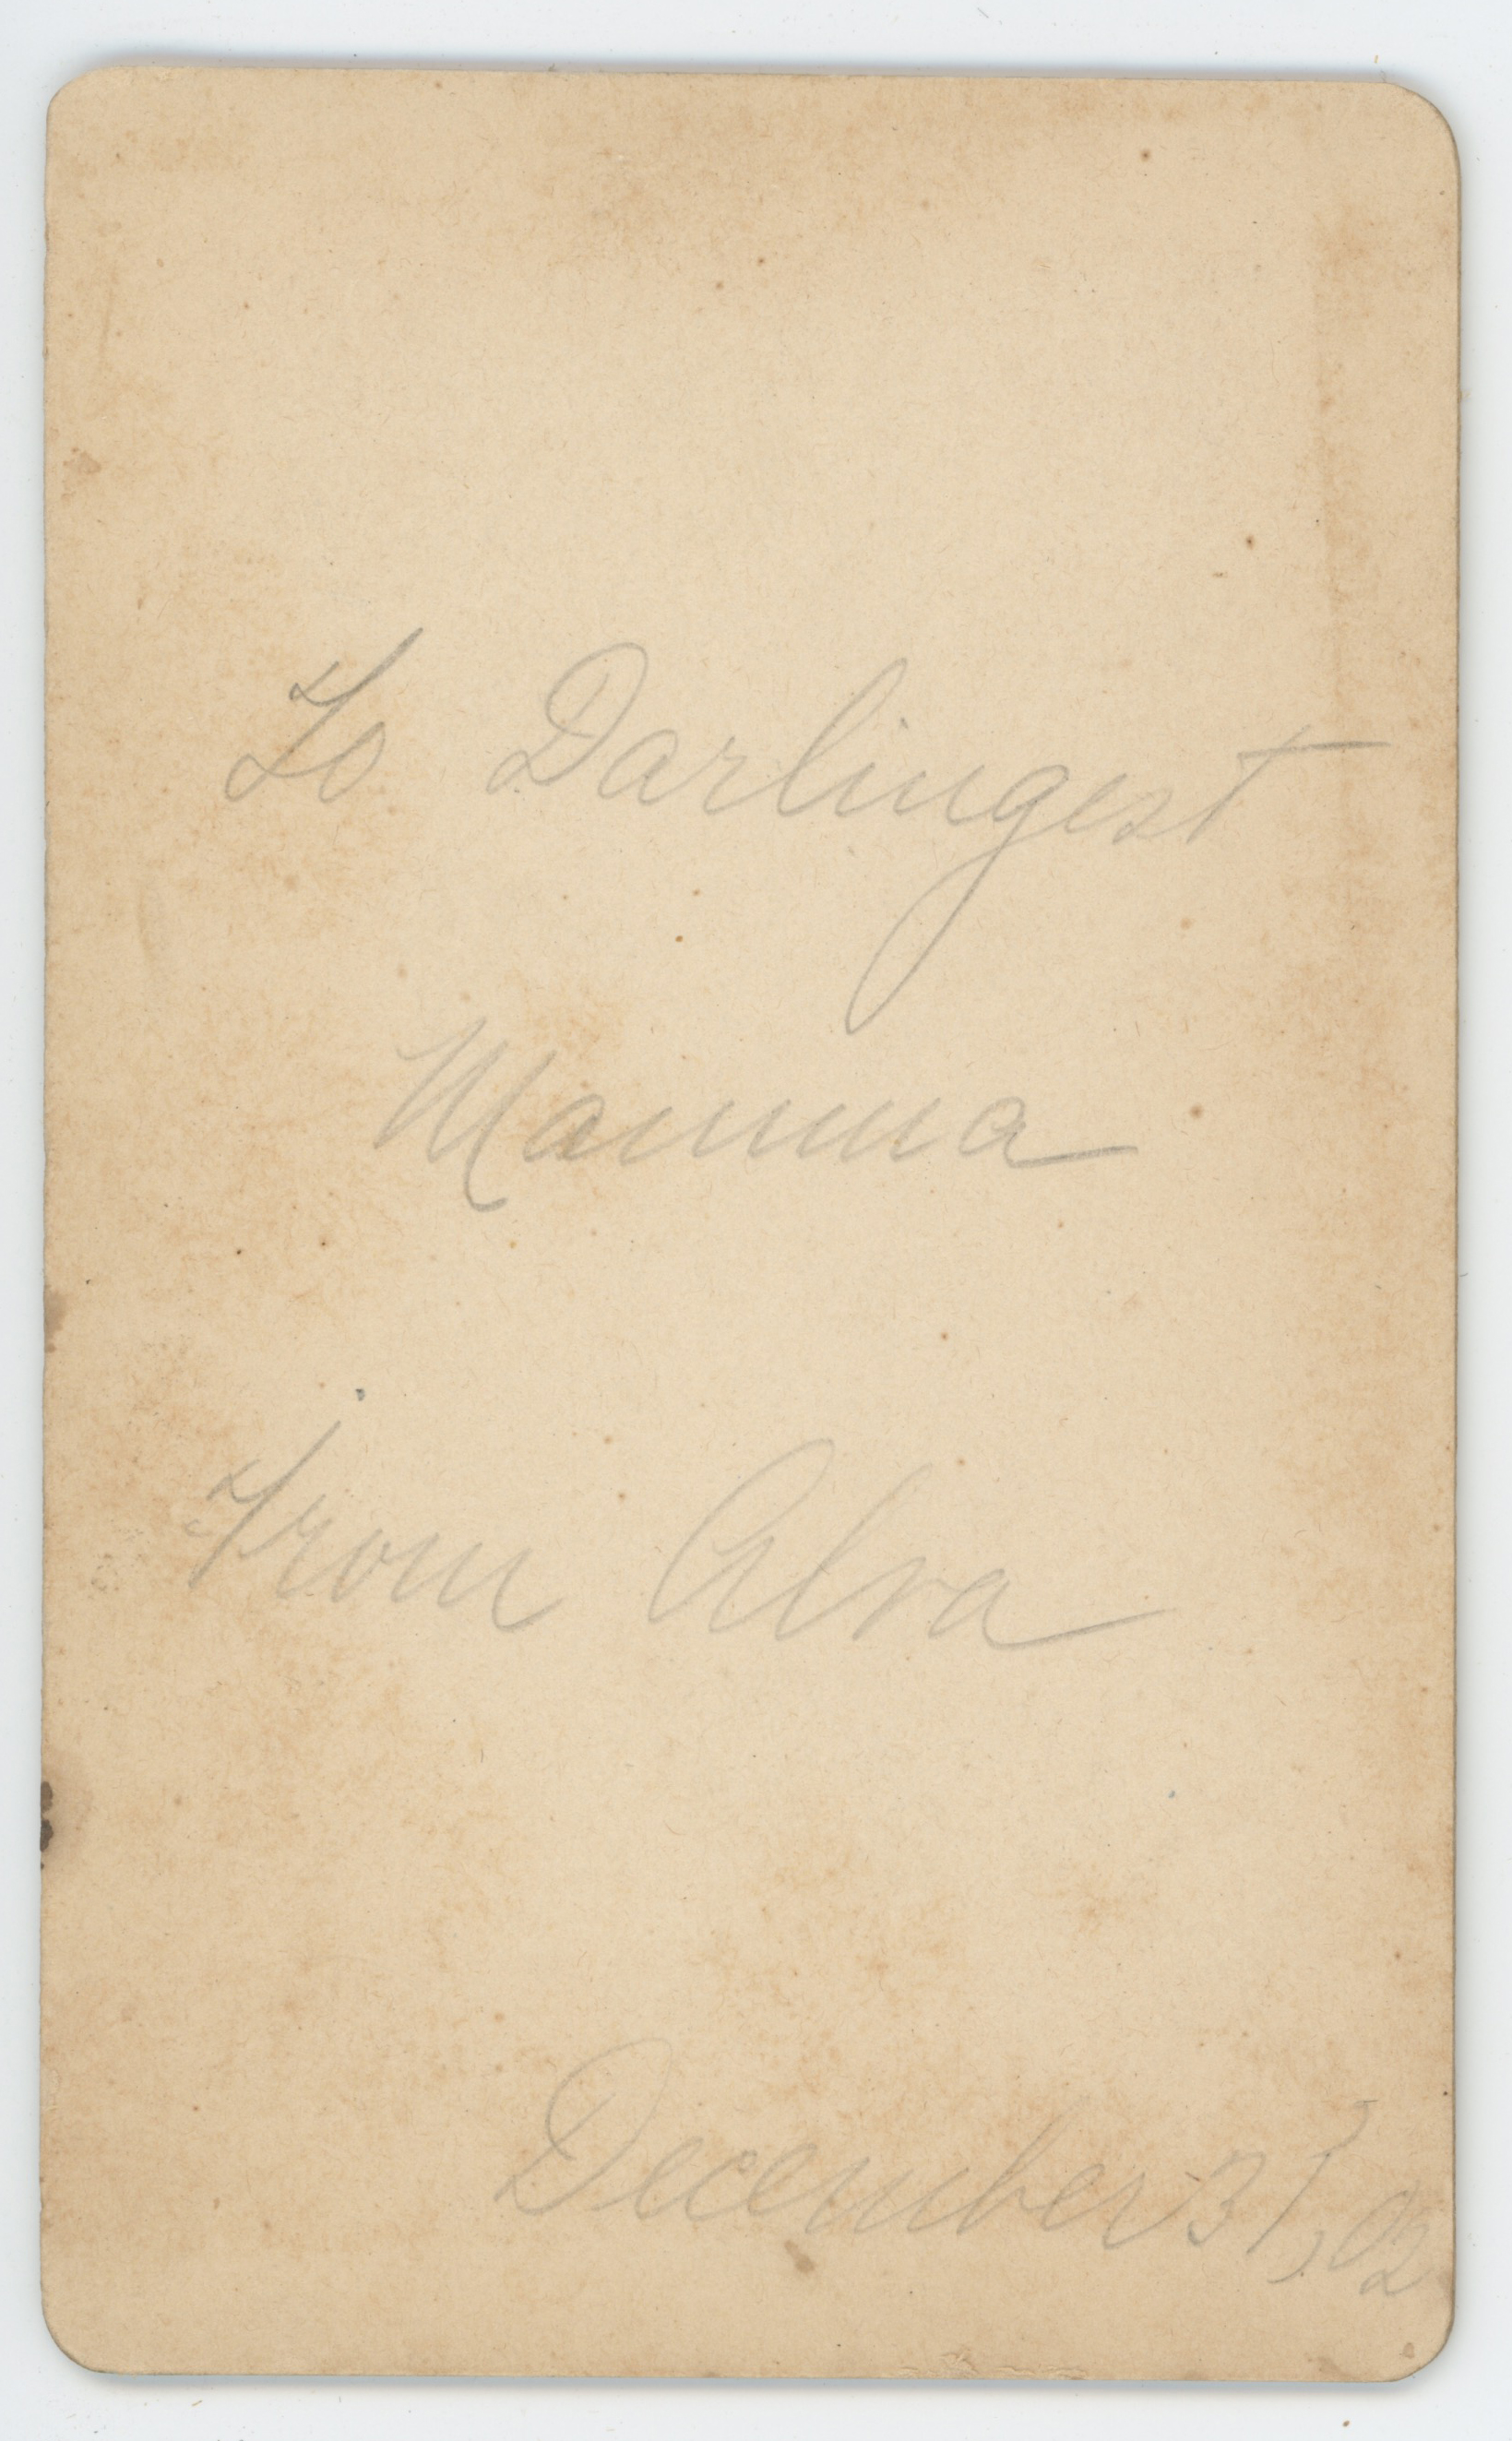 To Darlingest
Mamma
From Alva
December 31, 02